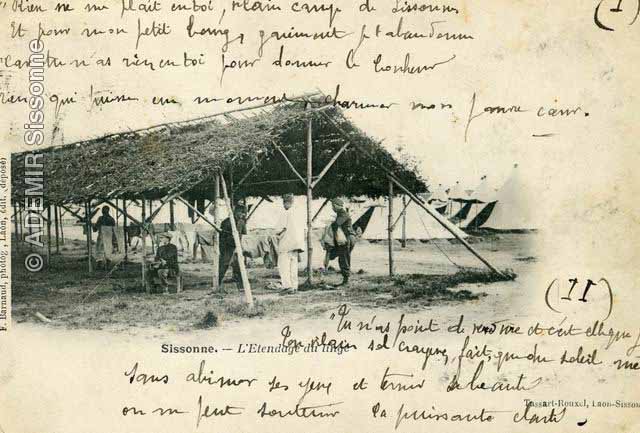 "Rien ne me plait en toi, vilain camp de Sissonne
(I)
Et pour mon petit bourg, gaiement je t'abandonne
Car tu n'as rien en toi pour donner le bonheur
rien qui puisse un moment charmer mon pauvre cœur.
© ADEMIR Sissonne
F. Barnaud, photog., Laon, édit. (déposé)
(II)
Tu n'as point de verdure et c'est
Sissonne. — L'Etendage du linge
Ton vilain sol crayeux, fait, que du soleil
sans abimer ses yeux et ternir sa beauté
on ne peut soutenir la puissante clarté.
Tassart-Rouxel, Laon-Sisson